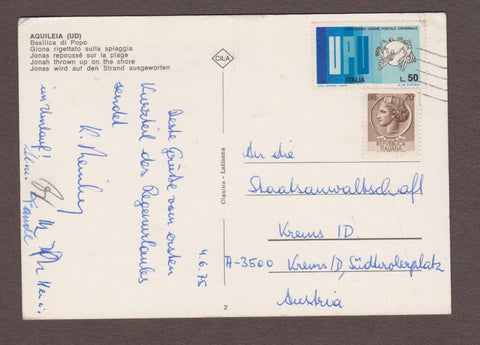 AQUILEIA (UD)
Basilica di Popo
Giona rigettato sulla spiaggia
Jonas repoussé sur la plage
Jonah thrown up on the shore
Jonas wird auf den Strand ausgeworfen
CILA
UNIONE POSTALE UNIVERSALE
UPU
ITALIA
L. 50
LIRE 20
REPUBBLICA
ITALIANA
Cigaina - Latisana
2
4.6.75
Beste Grüße vom ersten
Kurzteil des Regenurlaubes
sendet
K.
im Umlauf!
An die
Staatsanwaltschaft
Krems ID.
A-3500 Krems/D, Südtirolerplatz
Austria